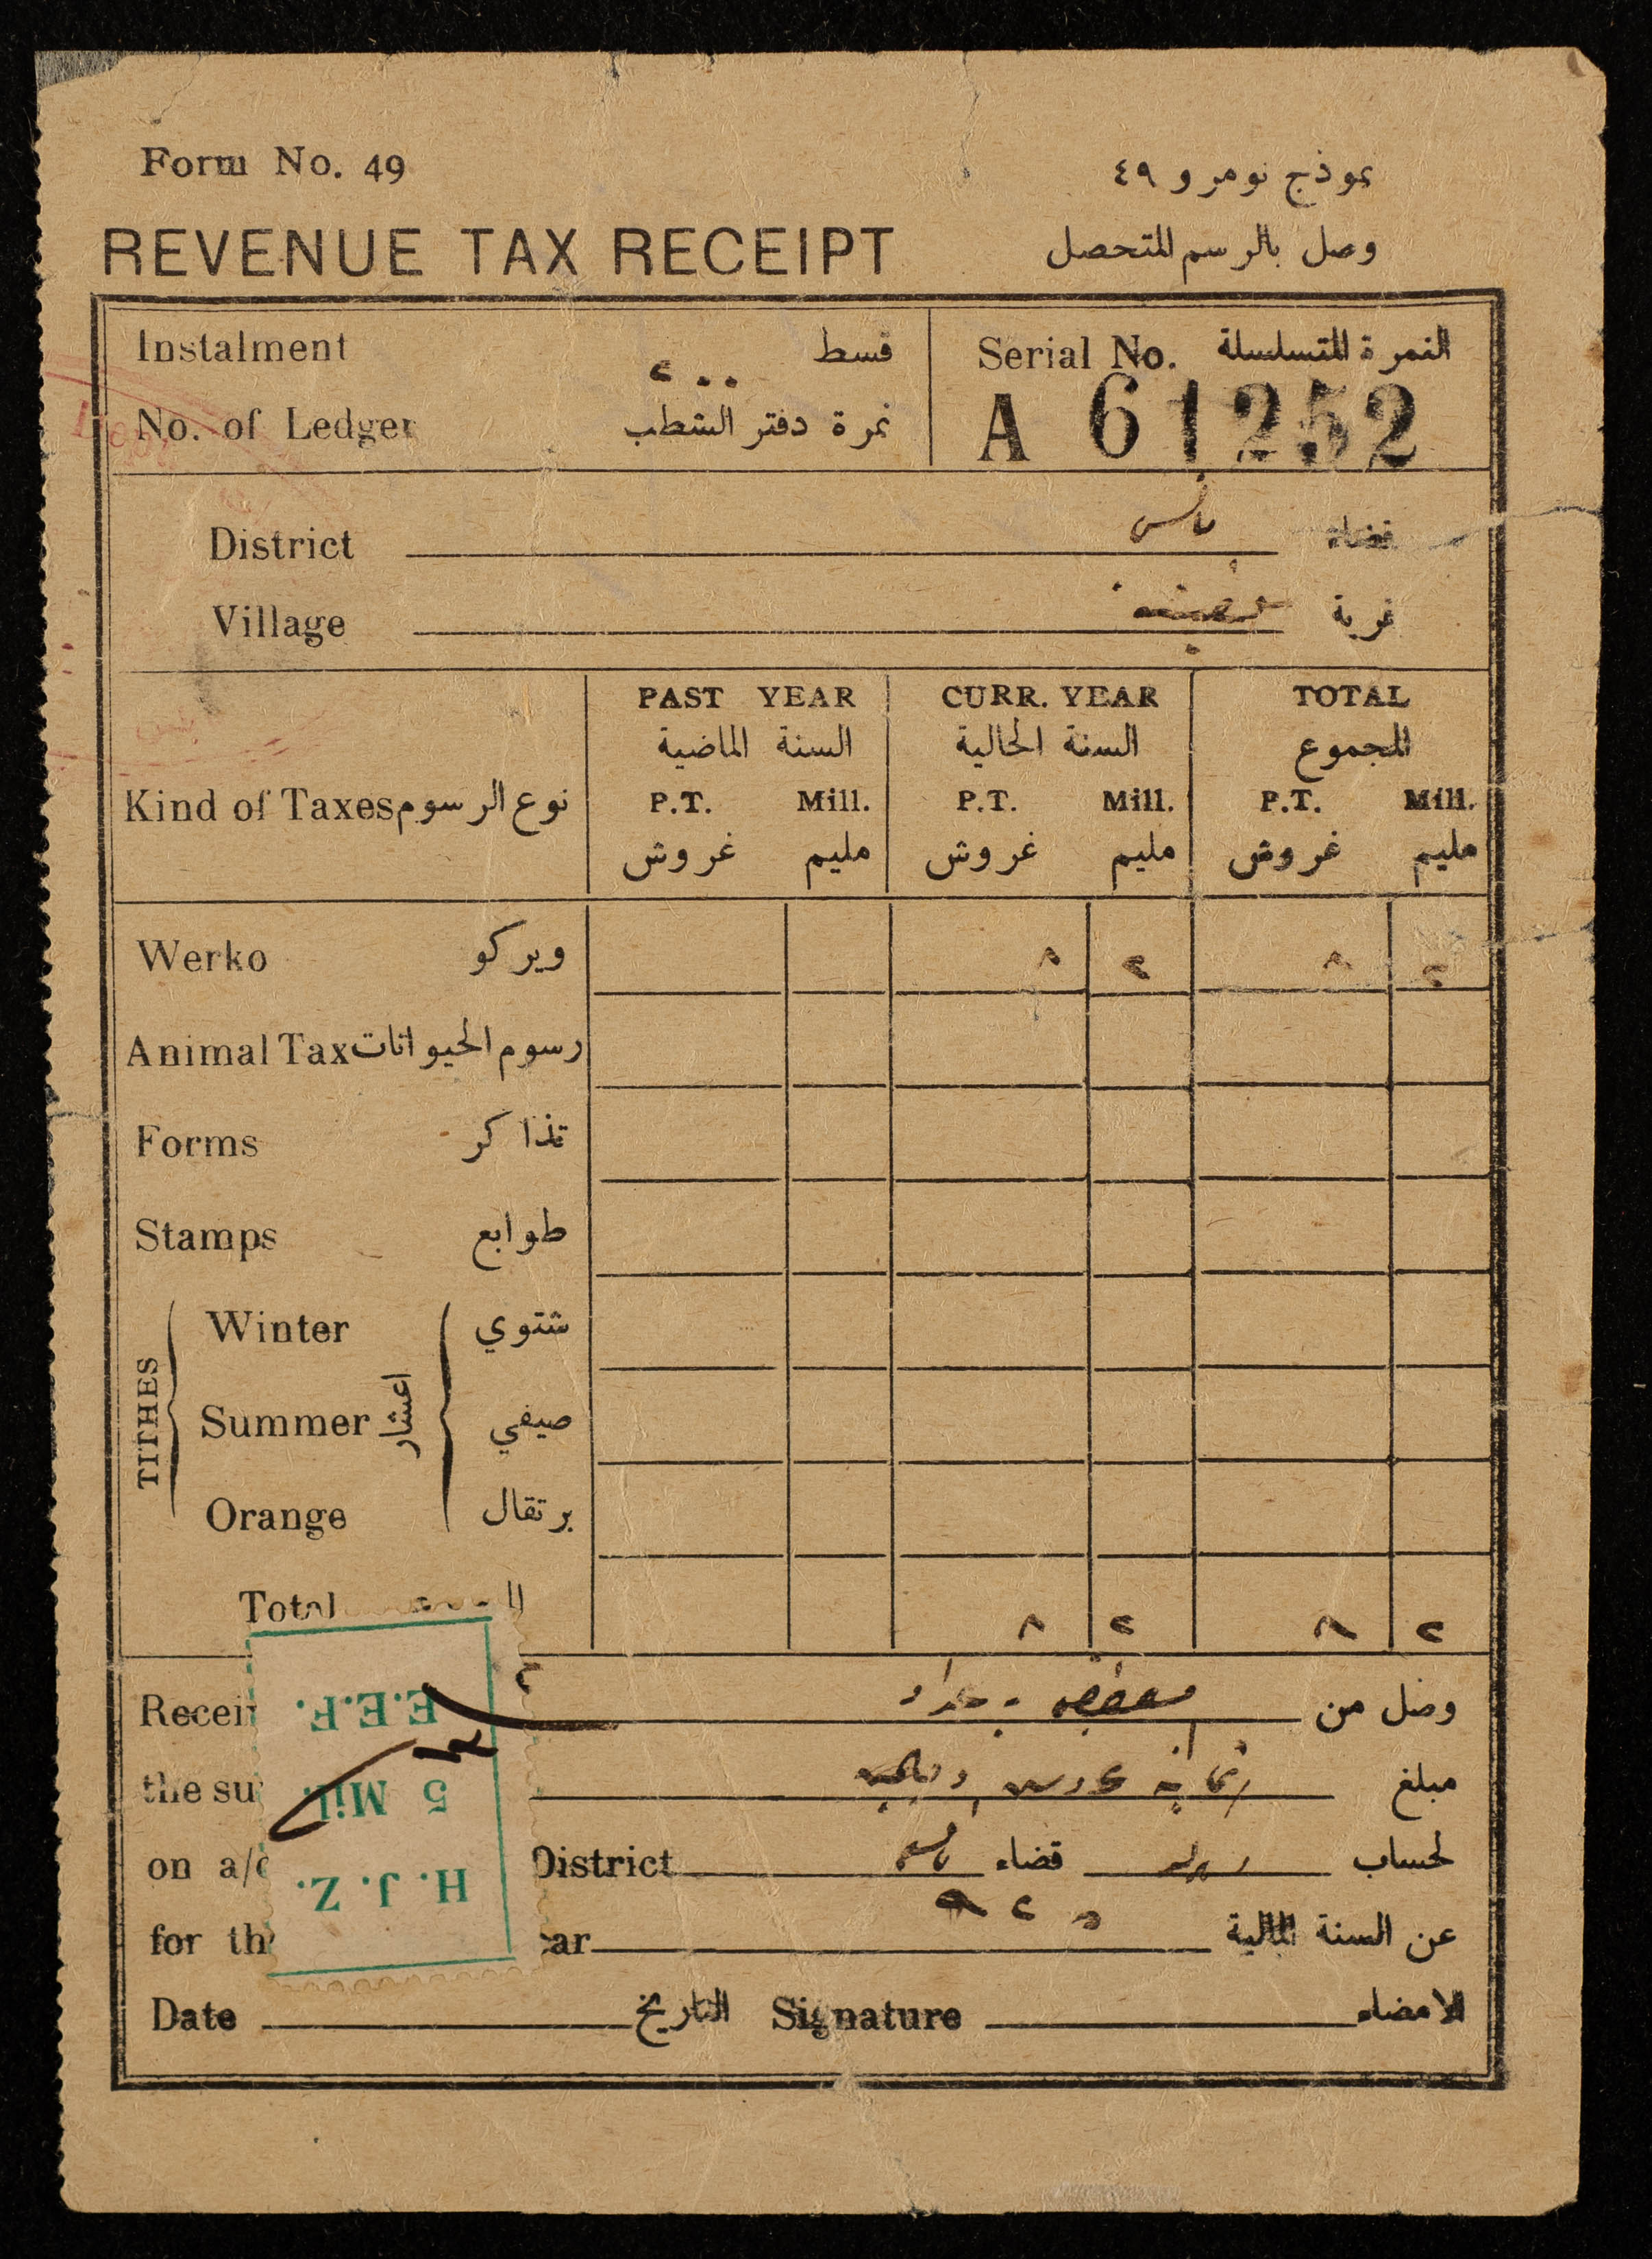 Form No. 49
نموذج نومرو ٤٩
REVENUE TAX RECEIPT
وصل بالرسم المتحصل
Instalment قسط
٢٠٠
No. of Ledger نمرة دفتر الشطب
Serial No. النمرة المتسلسلة
A 61252
District نابلس قضاء
Village قرية
Kind of Taxes نوع الرسوم
PAST YEAR CURR. YEAR TOTAL
السنة الماضية السنة الحالية المجموع
P.T. Mill. P.T. Mill. P.T. Mill.
غروش مليم غروش مليم غروش مليم
Werko ويركو ٨ ٢ ٨ ٢
Animal Tax رسوم الحيوانات
Forms تذاكر
Stamps طوابع
TITHES اعشار
Winter شتوي
Summer صيفي
Orange برتقال
Total ٨ ٢ ٨ ٢
Recei وصل من
the su مبلغ
on a/c District قضاء لحساب
for th ear عن السنة المالية
Date التاريخ Signature الامضاء
E.E.F.
5 Mil.
H.J.Z.